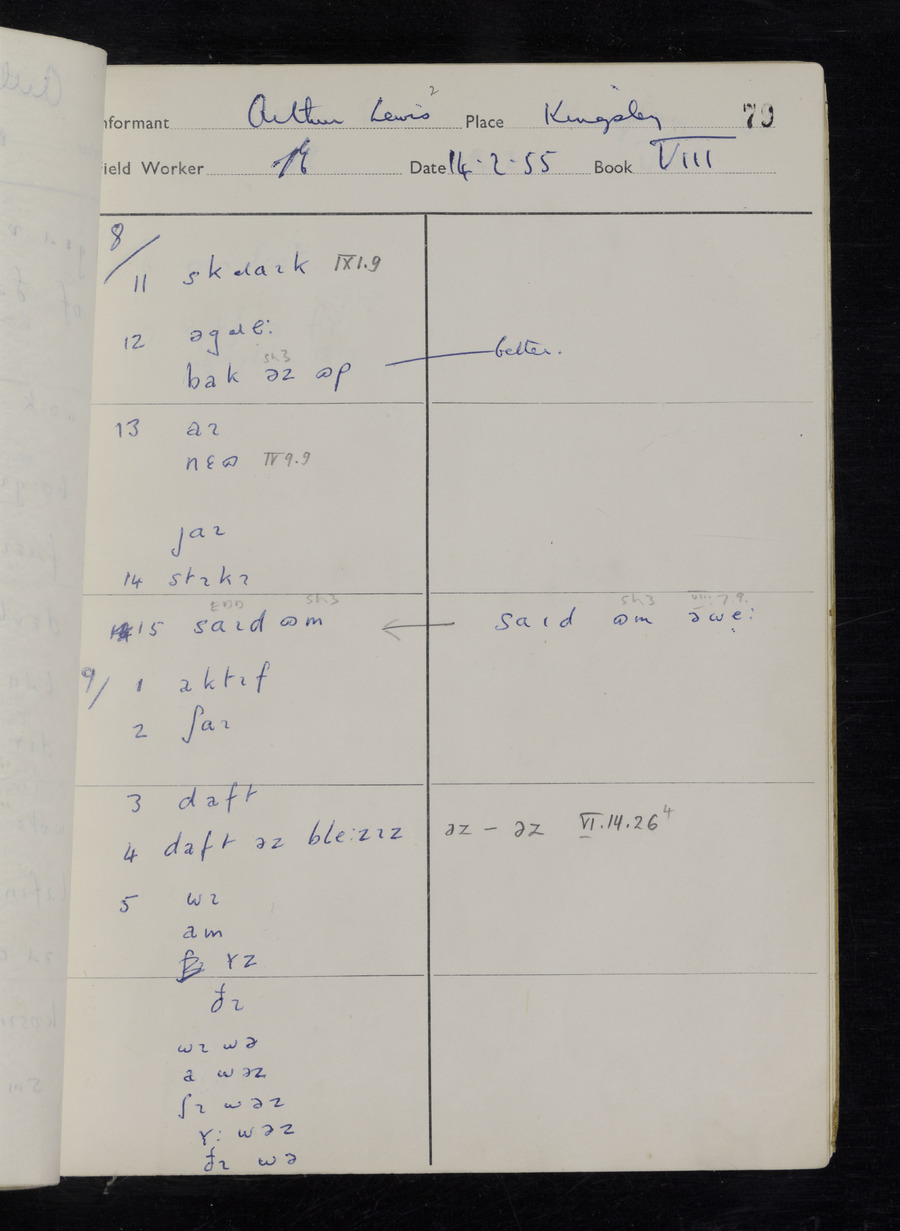 Informant Arthur Lewis ² Place Kingsley 79
Field Worker Date 14·2·55 Book VIII
8/
11 IX1.9
12 əgɛ:
sh3
bak əz ɷp — better.
13 aɪ
nɛɷ IV 9.9
jaɪ
14 stɪkɪ
EDD sh3 sh3 VIII.7.9.
15 saɪd ɷm ← saɪd ɷm əwe:
9/ 1 aktɪf
2 ʃaɪ
3 daft
4 daft əz ble:zɪz əz – əz VI.14.26⁴
5 wɪ
am
ɤz
ðɪ
wɪ wə
a wəz
ʃɪ wəz
ɤ: wəz
ðɪ wə